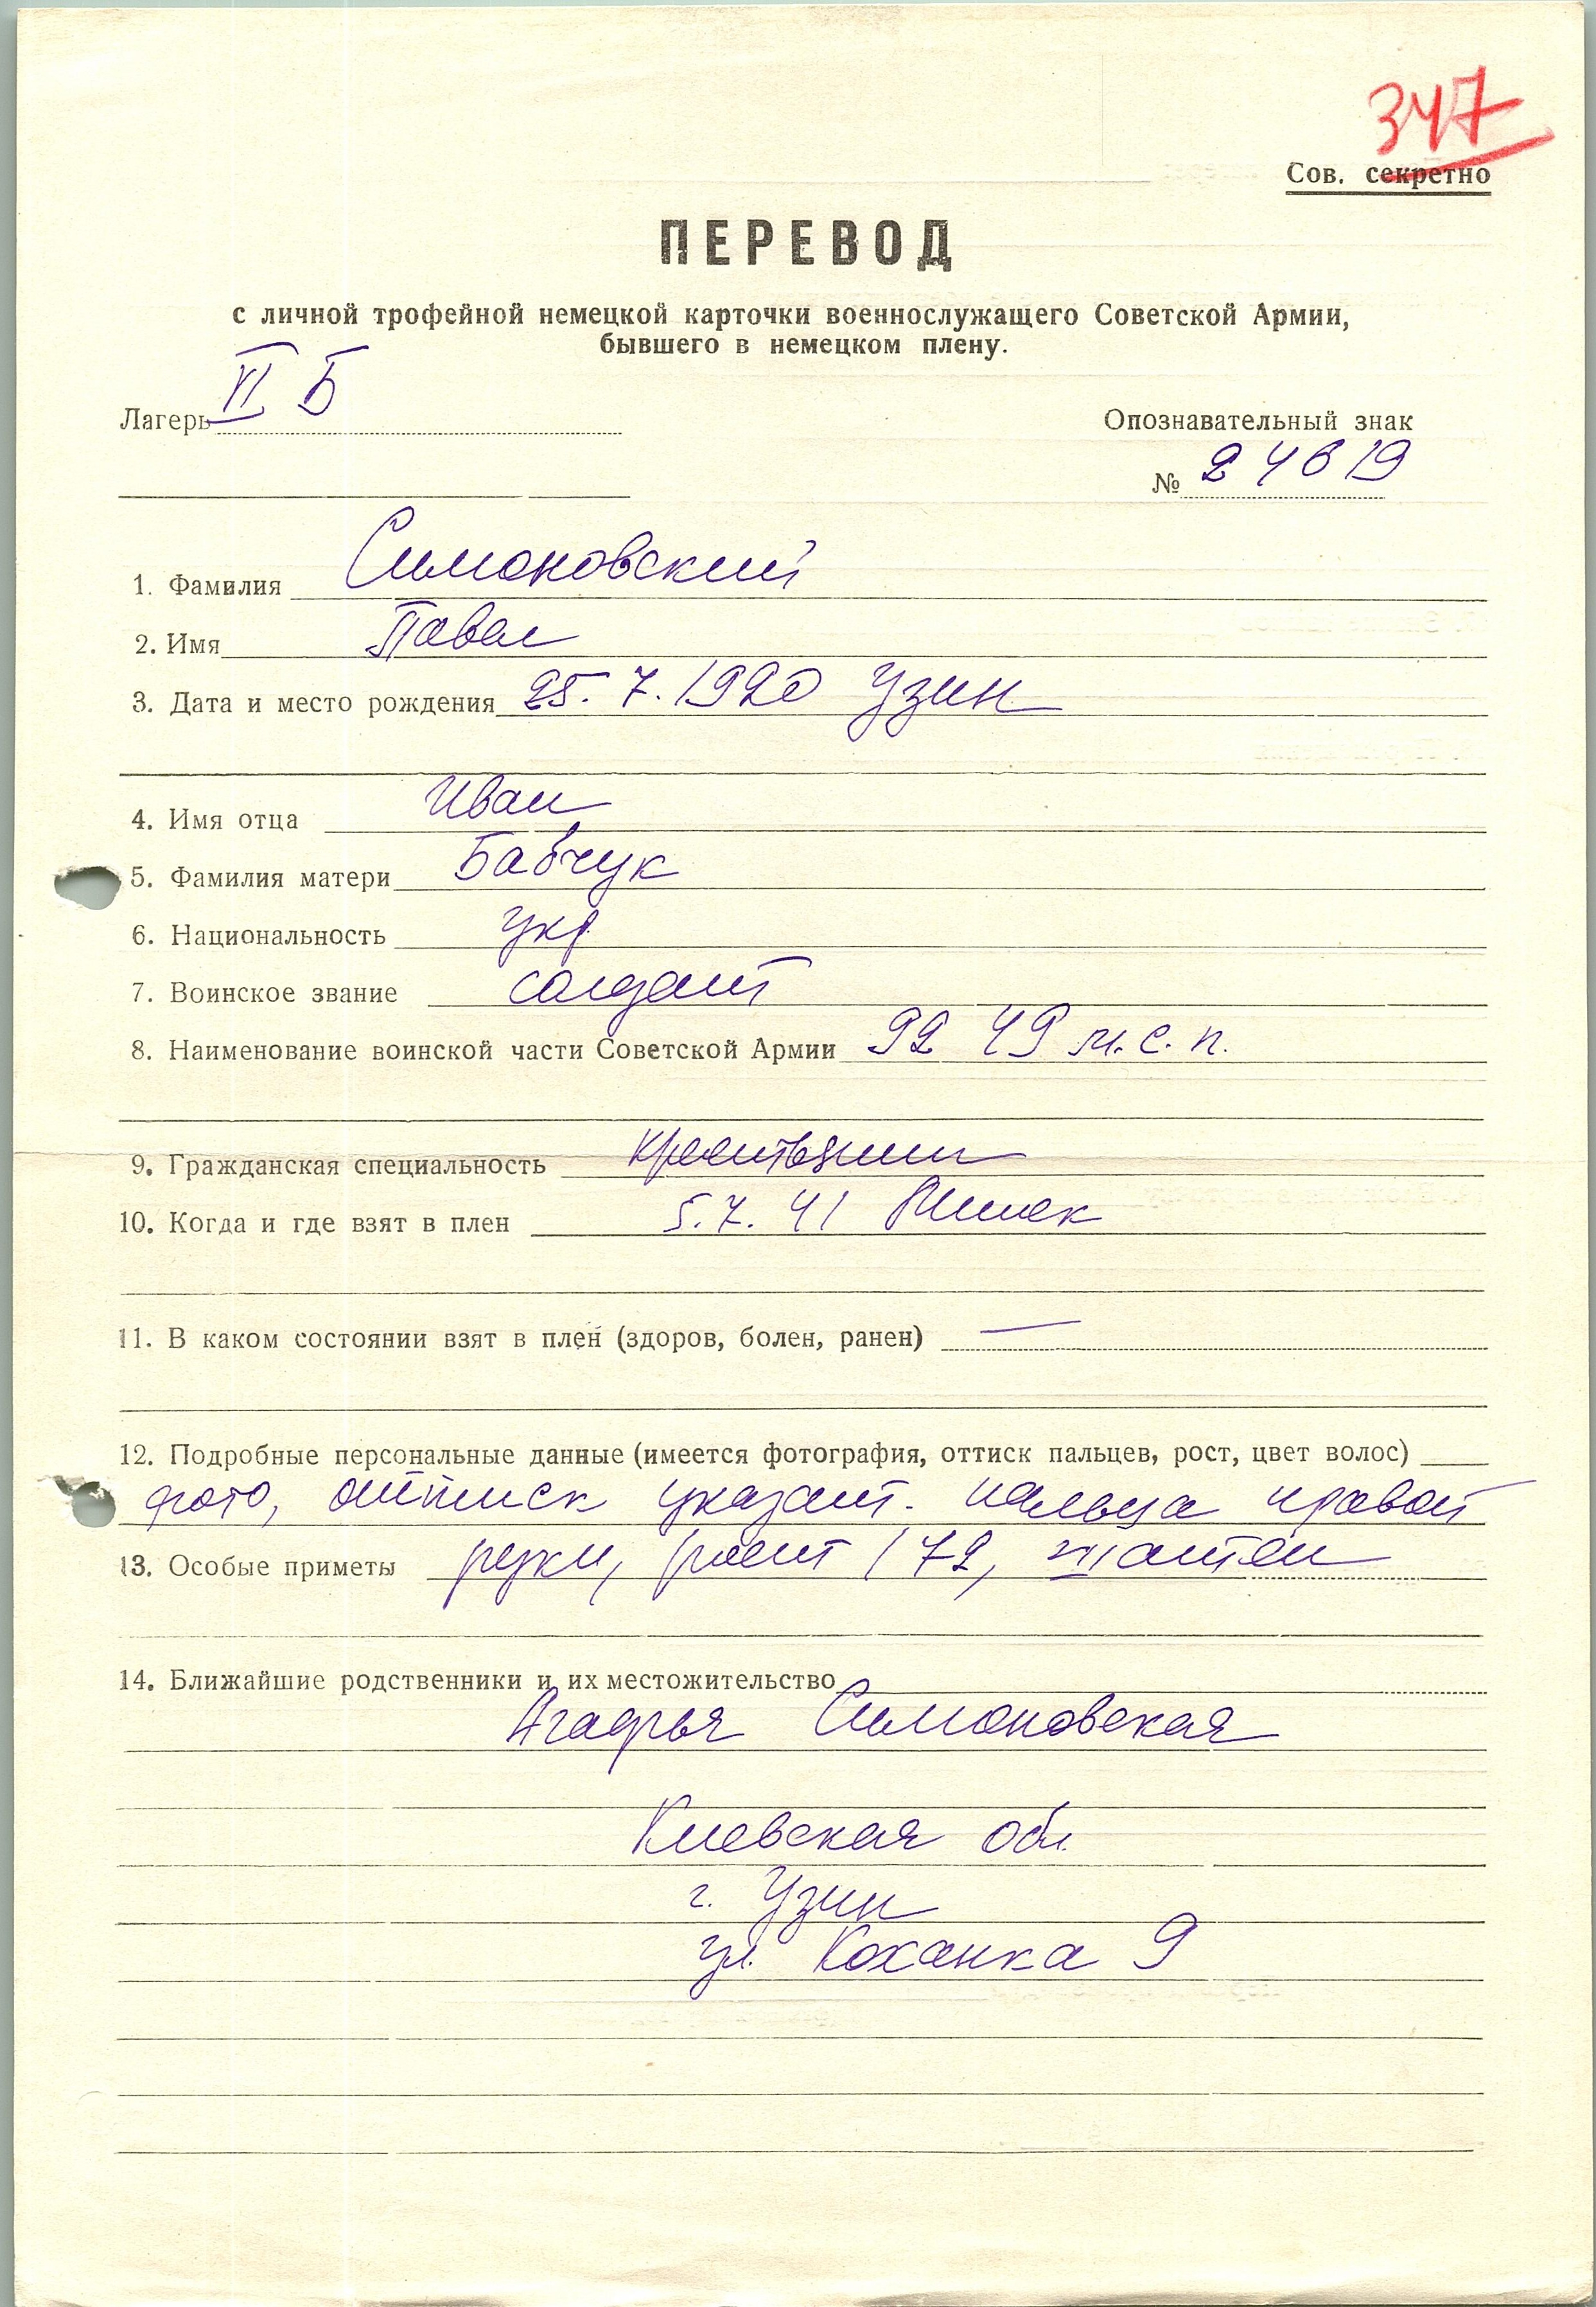 347
Сов. секретно
ПЕРЕВОД
с личной трофейной немецкой карточки военнослужащего Советской Армии,
бывшего в немецком плену.
Лагерь VI Б
Опознавательный знак
№ 24619
1. Фамилия Симоновский
2. Имя Павел
3. Дата и место рождения 25.7.1920 Узин
4. Имя отца Иван
5. Фамилия матери Бабчук
6. Национальность укр.
7. Воинское звание солдат
8. Наименование воинской части Советской Армии 92 49 м.с.п.
9. Гражданская специальность крестьянин
10. Когда и где взят в плен 5.7.41 Минск
11. В каком состоянии взят в плен (здоров, болен, ранен) —
12. Подробные персональные данные (имеется фотография, оттиск пальцев, рост, цвет волос)
фото, оттиск указат. пальца правой
13. Особые приметы руки, рост 172, шатен
14. Ближайшие родственники и их местожительство
Агафья Симоновская
Киевская обл.
г. Узин
ул. Коханка 9